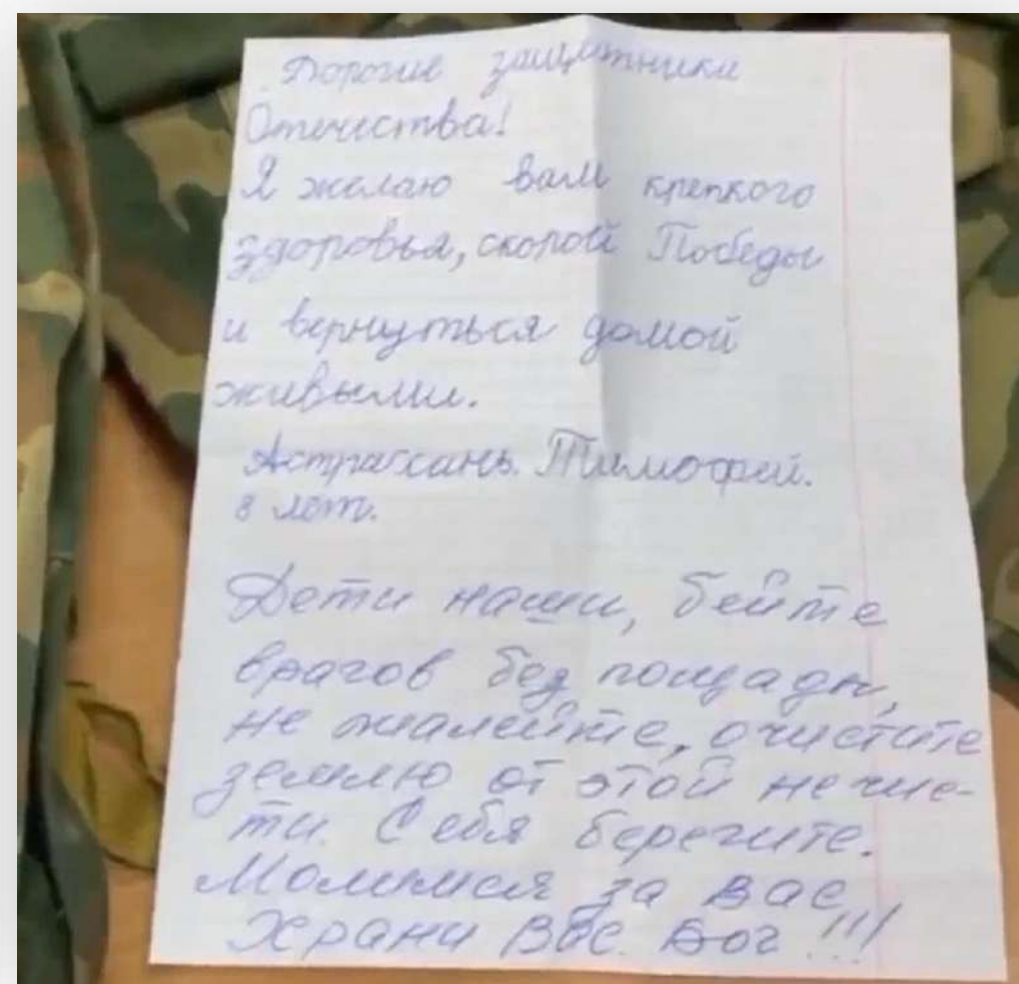 Дорогие защитники
Отечества!
Я желаю вам крепкого
здоровья, скорой Победы
и вернуться домой
живыми.
Астрахань. Тимофей.
8 лет.
Дети наши, бейте
врагов без пощады,
не жалейте, очистите
землю от этой нечис-
ти. Себя берегите.
Молимся за вас
Храни Вас Бог!!!